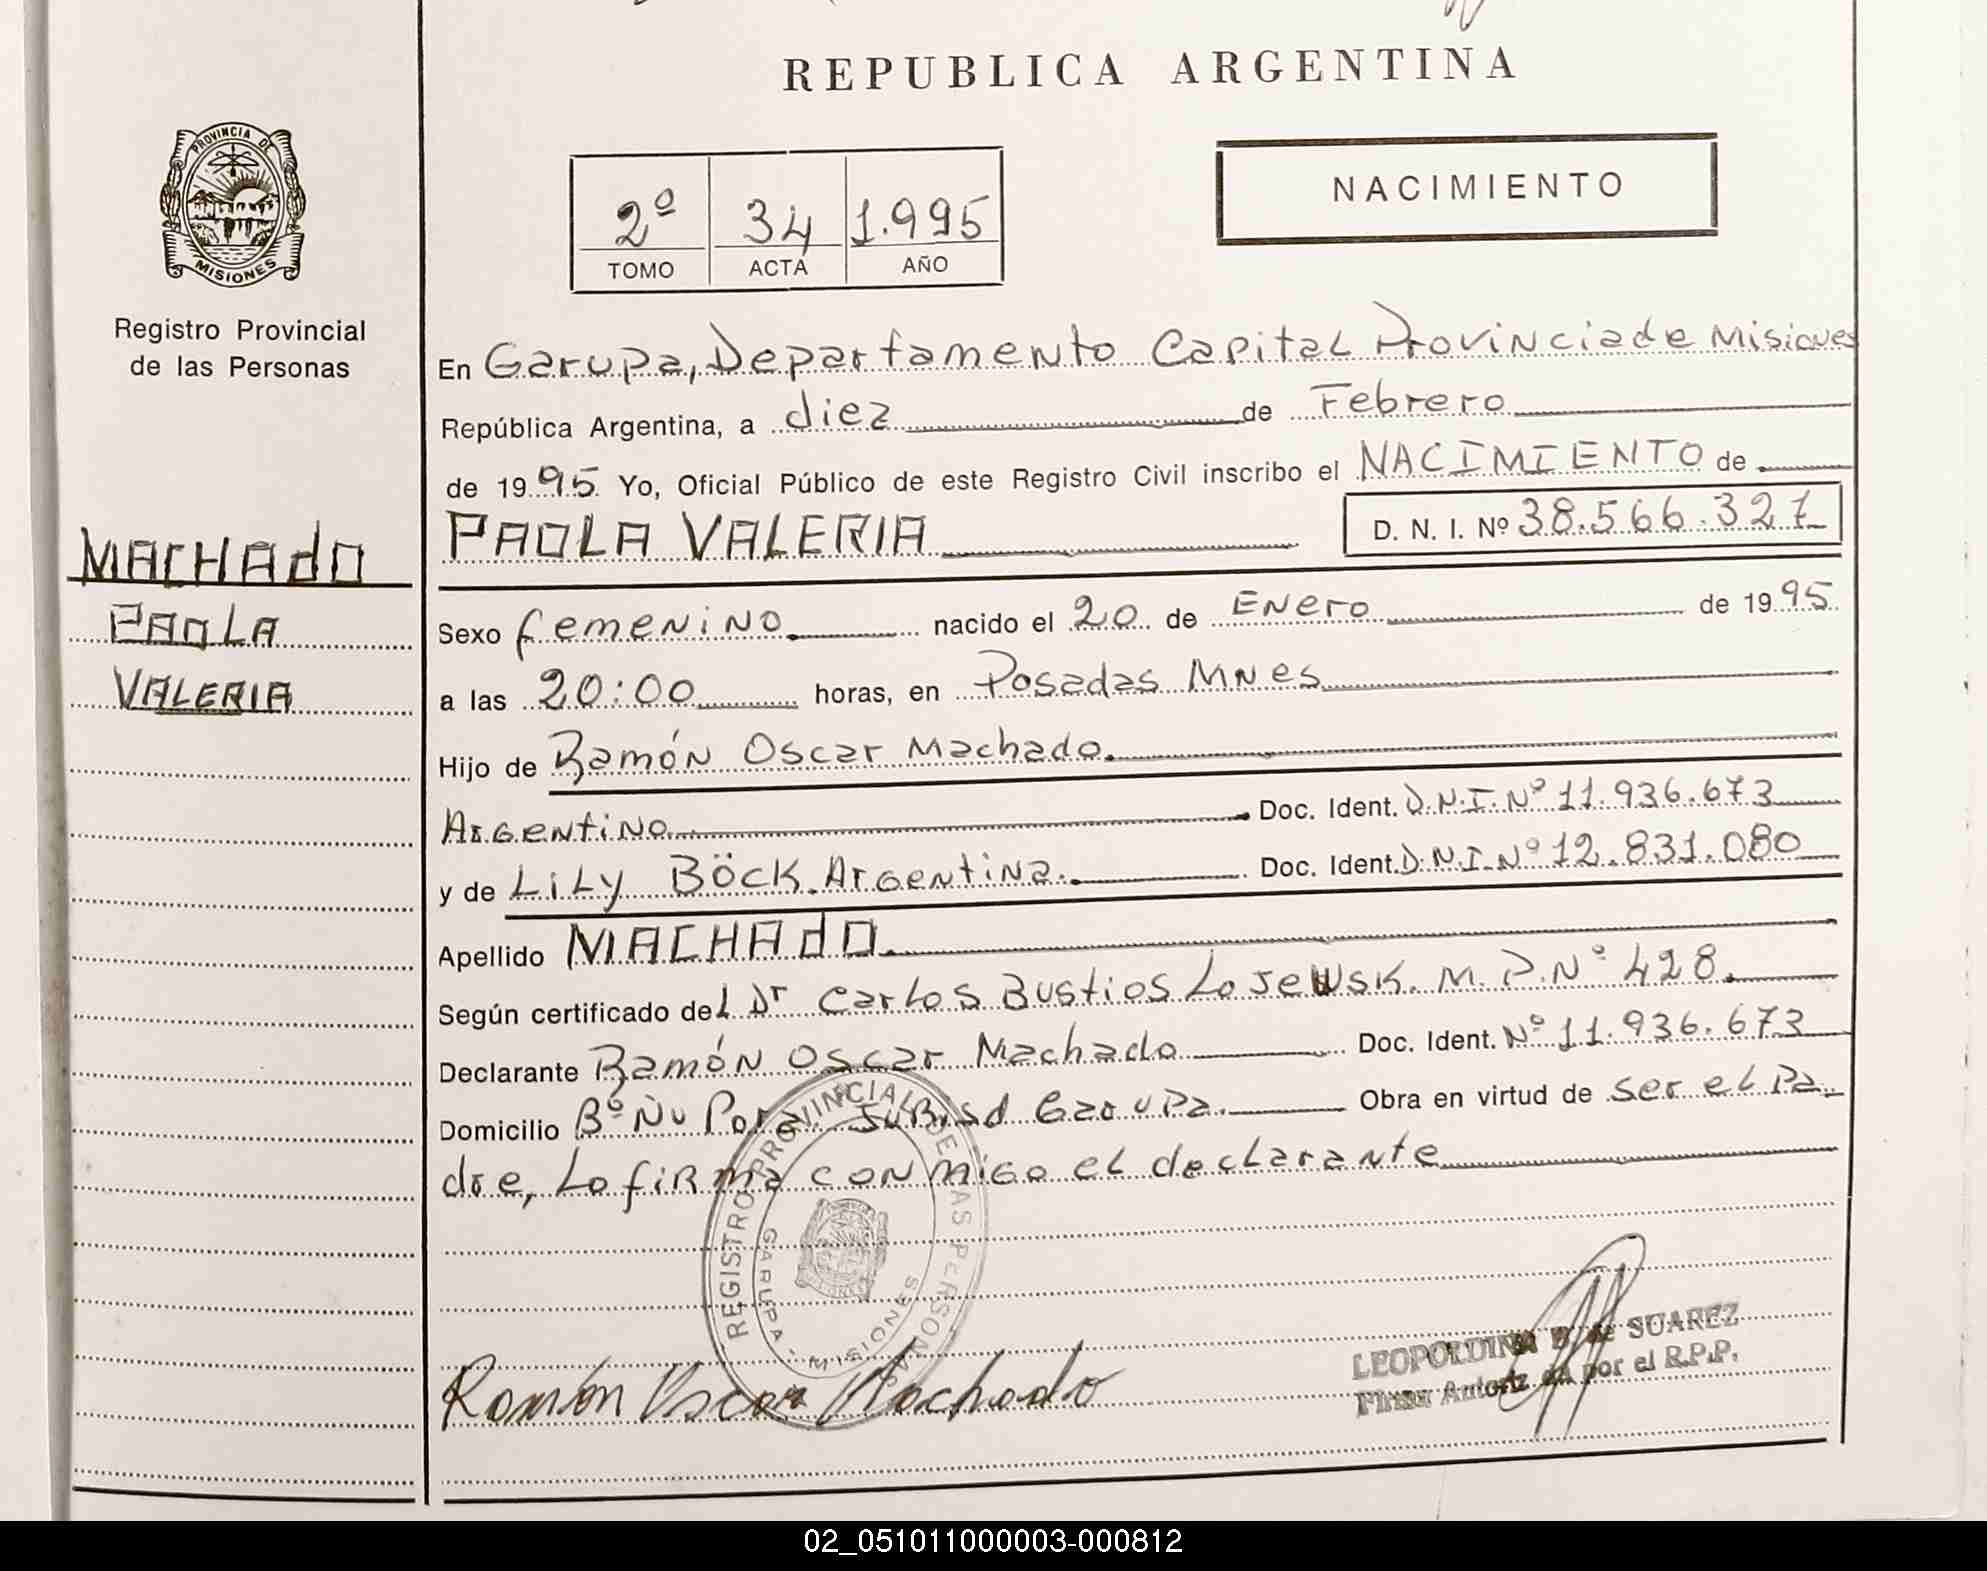 REPUBLICA ARGENTINA
PROVINCIA DE
MISIONES
Registro Provincial
de las Personas
2º 34 1.995
TOMO ACTA AÑO
NACIMIENTO
En Garupa, Departamento Capital Provincia de Misiones
República Argentina, a diez de Febrero
de 1995 Yo, Oficial Público de este Registro Civil inscribo el NACIMIENTO de
MACHADO
PAOLA
VALERIA
PAOLA VALERIA D. N. I. Nº 38.566.327
Sexo femenino nacido el 20 de Enero de 1995
a las 20:00 horas, en Posadas Mnes
Hijo de Ramón Oscar Machado.
Argentino Doc. Ident. D.N.I. Nº 11.936.673
y de Lily Böck. Argentina. Doc. Ident. D.N.I. Nº 12.831.080
Apellido MACHADO.
Según certificado del Dr Carlos Bustios Losewsk. M.P. Nº 428.
Declarante Ramón Oscar Machado Doc. Ident. Nº 11.936.673
Domicilio Bº Ñu Porá Garupa. Obra en virtud de ser el pa
dre, Lo firma conmigo el declarante
REGISTRO PROVINCIAL DE LAS PERSONAS
GARUPA - MISIONES
Ramón Oscar Machado
LEOPOLDINA B. de SUAREZ
Firma Autoriz da por el R.P.P.
02_051011000003-000812